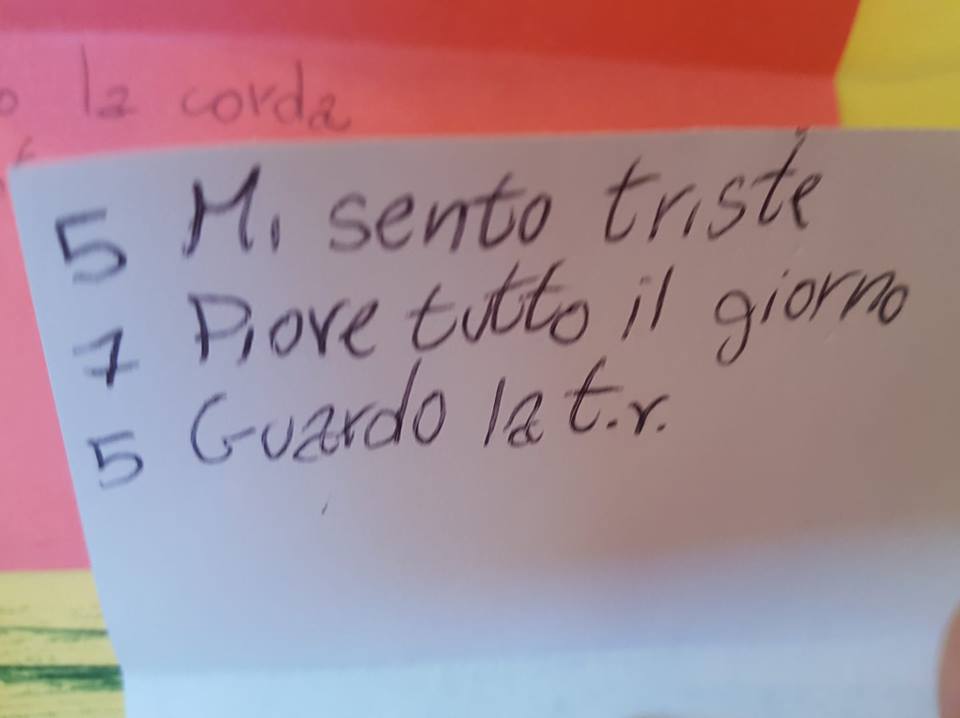 la corda
5 Mi sento triste
7 Piove tutto il giorno
5 Guardo la t.v.